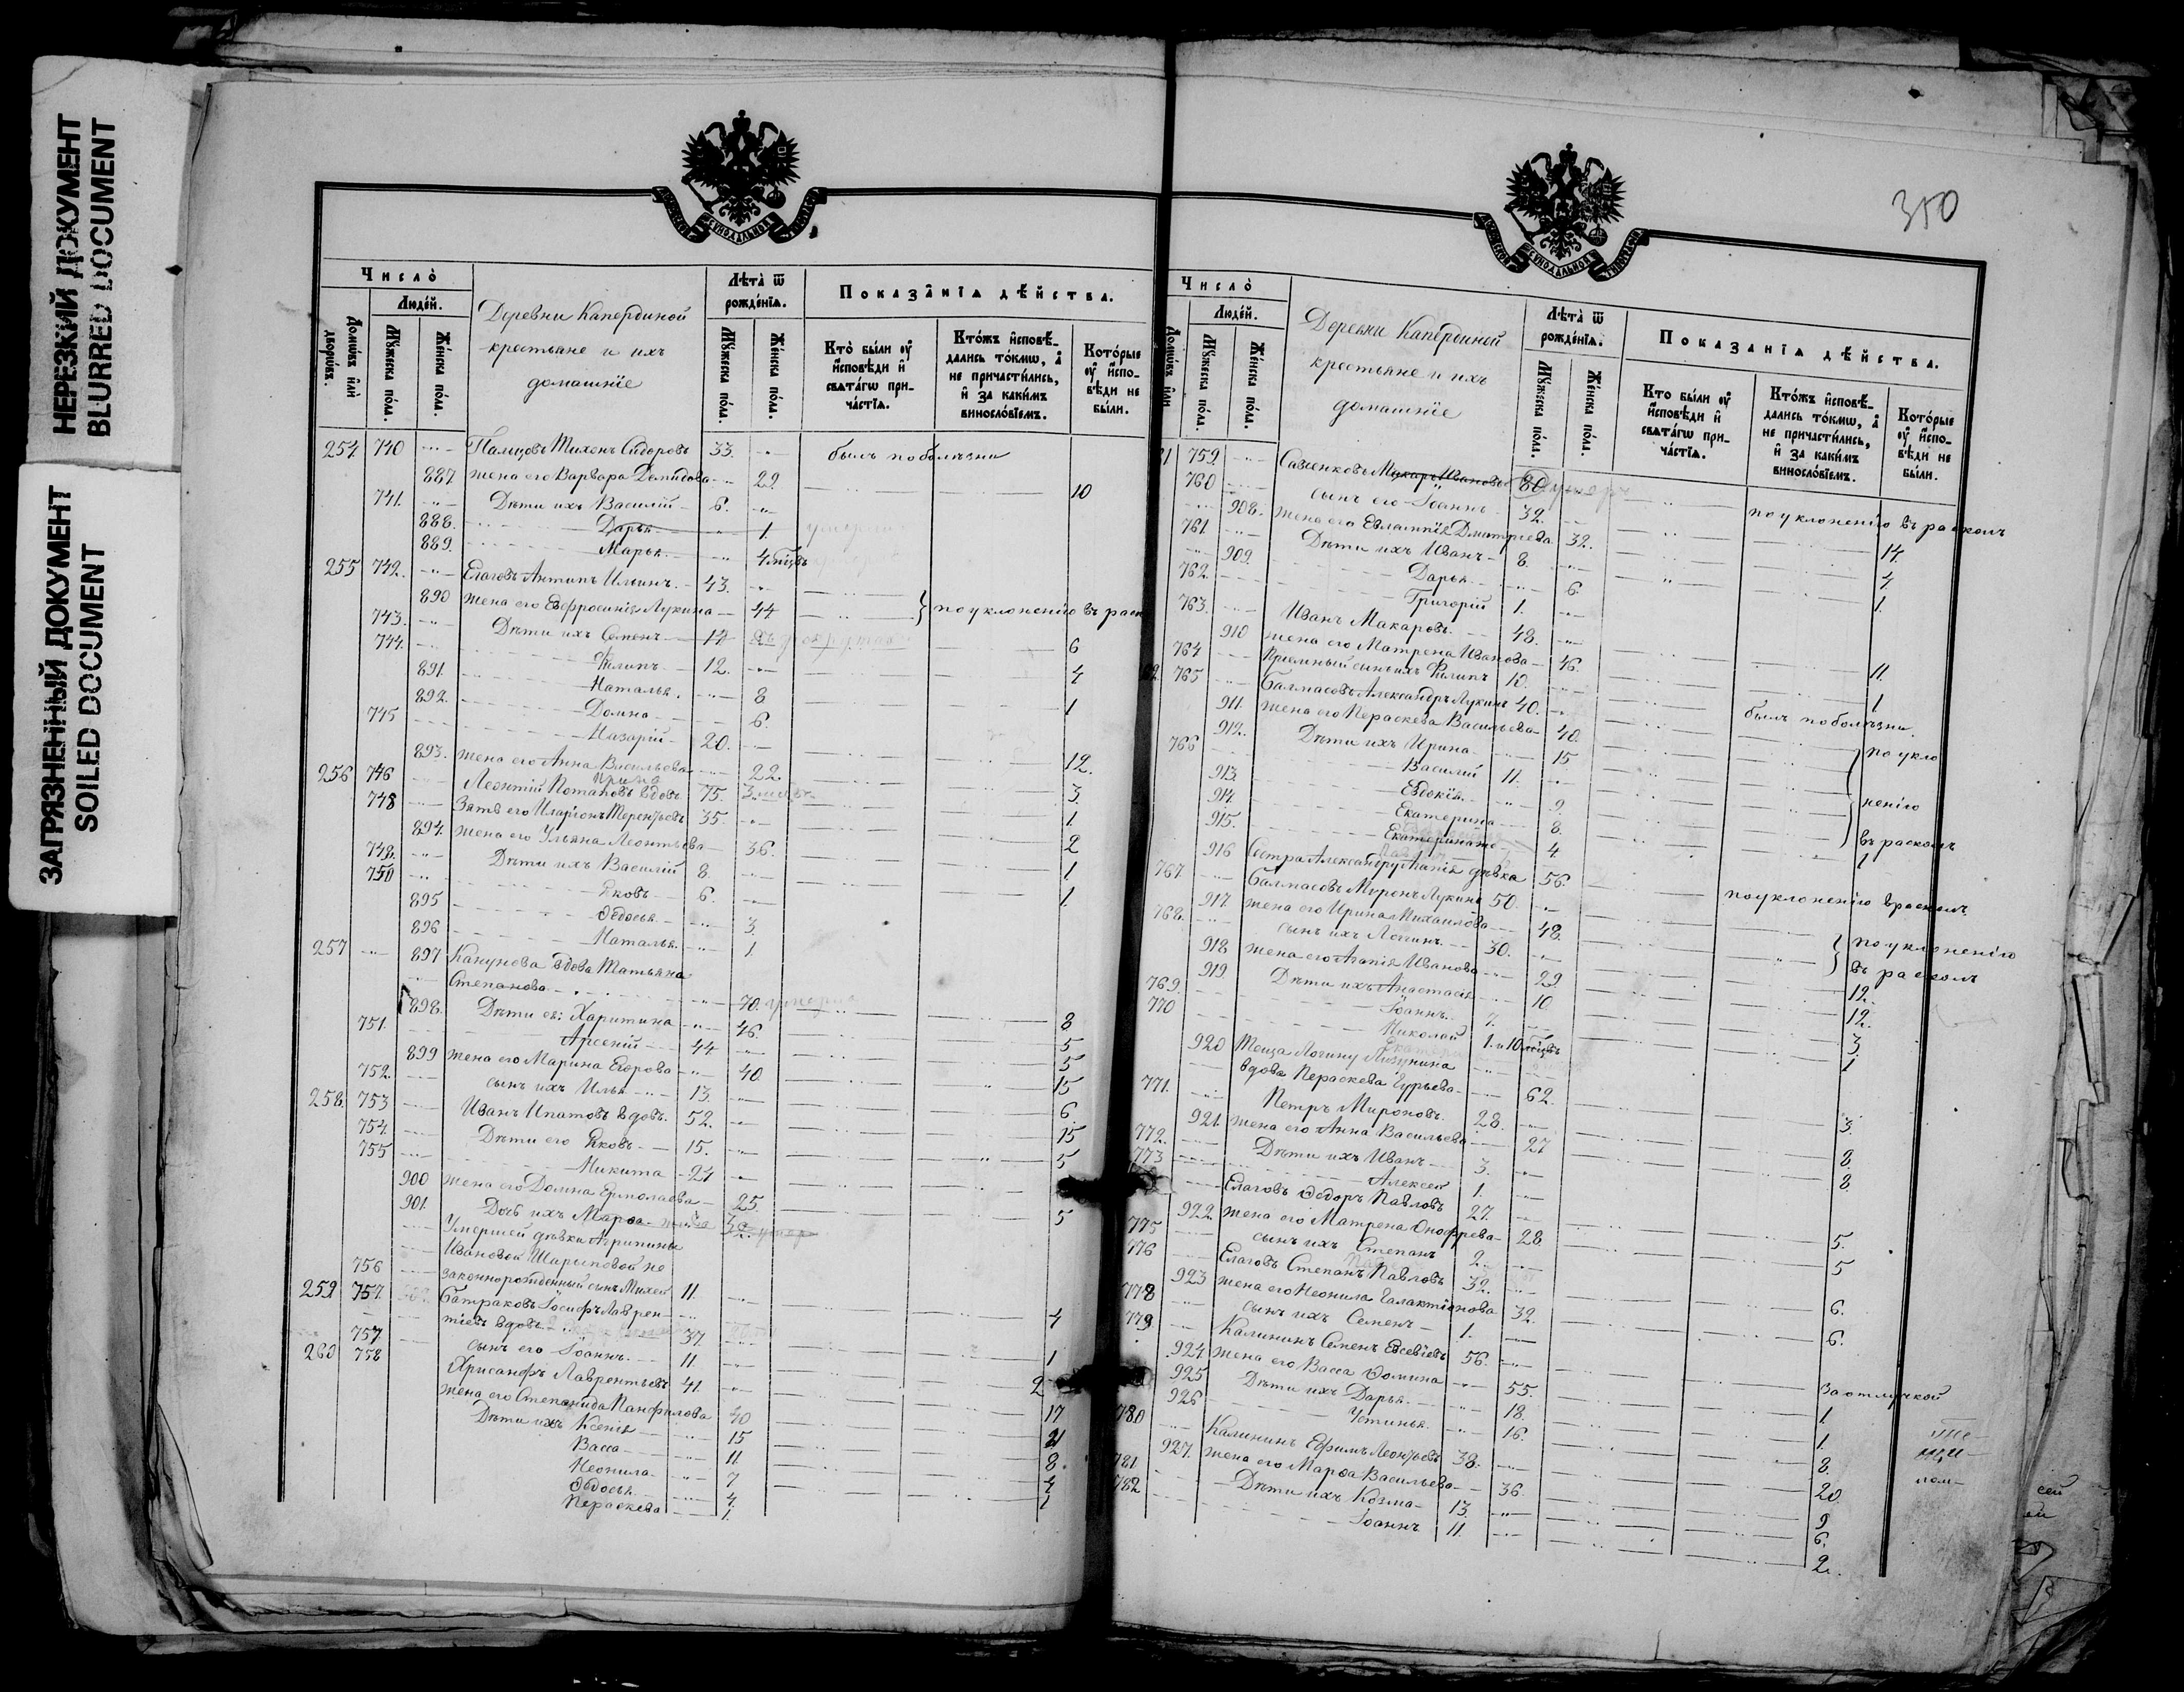 НЕРЕЗКИЙ ДОКУМЕНТ
BLURRED DOCUMENT
ЗАГРЯЗНЕННЫЙ ДОКУМЕНТ
SOILED DOCUMENT
Число̀
Люде́й.
Домѡ́въ и҆лѝ дворѡ́въ.
Мꙋ́жеска по́ла.
Же́нска по́ла.
Деревни Капердиной
крестьяне и ихъ
домашніе
Лѣта̀ ѿ
рожде́нїѧ.
Мꙋ́жеска по́ла.
Же́нска по́ла.
Показа̑нїѧ дѣ́йства.
Кто̀ бы́ли ᲂу҆
и҆́сповѣди и҆
свѧта́гѡ при-
ча́стїѧ.
Кто́жъ и҆сповѣ́-
дались то́кмѡ, а҆
не причасти́лись,
и҆ за каки́мъ
винословїемъ.
Кото́рые
ᲂу҆ и҆́спо-
вѣди не
бы́ли.
254 740 Палцовъ Тихонъ Сидоровъ 33. былъ по болѣзни
887 жена его Варвара Демидова 29. 10
741. Дѣти ихъ Василій 6.
888. Дарья 1.
889. Марья 4 мѣсцъ
255 742. Елаговъ Антипъ Ильинъ 43.
890 жена его Евфросинія Лукина 44 } по уклоненію въ раск
743. Дѣти ихъ Семенъ 14
744. Филипъ 12. 6
891. Наталья 8 4
892. Домна 6. 1
745 Назарій 20.
893. жена его Анна Васильева 22. 12.
256 746 Леонтій Потаповъ вдовъ 75. 3.
748 Зять его Иларіонъ Терентьевъ 35. 1.
894. жена его Ульяна Леонтьева 36. 2
748. Дѣти ихъ Василій 8. 1
750 Яковъ 6. 1.
895 Ѳедосья 3.
896 Наталья 1
257 897 Канунова вдова Татьяна
Степанова 70.
898. Дѣти ея: Харитина 46. 8
751. Арсеній 44 5
899 жена его Марина Егорова 40. 5
752. сынъ ихъ Илья 13. 15
258. 753 Иванъ Ипатовъ вдовъ. 52. 6
754. Дѣти его Яковъ 15. 15
755 Никита 24 5
900 жена его Домна Ермолаева 25.
901. Дочь ихъ Марѳа 5
Умершей дѣвки Агрипины
Ивановой Шарыповой не
756 законнорожденный сынъ Михей 11.
259 757. Батраковъ Іосифъ Лаврен-
тіевъ вдовъ 37. 4
757. сынъ его Іоаннъ 11. 1
260 758 Хрисанфъ Лаврентьевъ 41. 2
жена его Степанида Панфилова 40 17
Дѣти ихъ Ксенія 15 21
Васса 11. 8.
Неонила 7 4
Ѳедосья 4. 1
Параскева 1.
350
Число̀
Люде́й.
Домѡ́въ и҆лѝ
Мꙋ́жеска по́ла.
Же́нска по́ла.
Деревни Капердиной
крестьяне и ихъ
домашніе
Лѣта̀ ѿ
рожде́нїѧ.
Мꙋ́жеска по́ла.
Же́нска по́ла.
Показа̑нїѧ дѣ́йства.
Кто̀ бы́ли ᲂу҆
и҆́сповѣди и҆
свѧта́гѡ при-
ча́стїѧ.
Кто́жъ и҆сповѣ́-
дались то́кмѡ, а҆
не причасти́лись,
и҆ за каки́мъ
винословїемъ.
Кото́рые
ᲂу҆ и҆́спо-
вѣди не
бы́ли.
759. Макаръ Ивановъ 80
760 сынъ его Іоаннъ 32. по уклоненію въ расколъ
908. жена его Евлампія Дмитріева 32. 14.
761. Дѣти ихъ Иванъ 8. 4
909. Дарья 6. 1.
762. Григорій 1.
763. Иванъ Макаровъ 48.
910 жена его Матрена Иванова 46. 11.
764 Пріемный сынъ ихъ Филипъ 10. 1
765 Балмасовъ Александръ Лукинъ 40. былъ по болѣзни
911. жена его Параскева Васильева 40. } по укло
912. Дѣти ихъ Ирина 15
766 Василій 11. нению
913. Евдокія 9.
914. Екатерина 8. въ расколъ
915. Екатерина же 4. 1
916 Сестра Александру Агапія дѣвка 56.
767. Балмасовъ Миронъ Лукинъ 50. по уклоненію в расколъ
917. жена его Ирина Михаилова 48. } по уклоненію
768. сынъ ихъ Логинъ 30. въ расколъ
918 жена его Агапія Иванова 29. 12.
919 Дѣти ихъ Анастасія 10. 12.
769. Іоаннъ 7. 3
770 Николай 1. и 10 мѣсцъ 1
920 Теща Логину
вдова Параскева Гурьева 62. 3.
771. Петръ Мироновъ 28. 8.
921. жена его Анна Васильева 27 8
772. Дѣти ихъ Иванъ 3.
773 Алексей 1.
Елаговъ Ѳедоръ Павловъ 27. 5.
922. жена его Матрена Онофріева 28 5
775 сынъ ихъ Степанъ 2.
776 Елаговъ Степанъ Павловъ 32. 6.
923 жена его Неонила Галактіонова 32. 6.
778 сынъ ихъ Семенъ 1.
779 Калининъ Семенъ Евсевіевъ 56. За отлучкой
924. жена его Васса Ѳомина 55. 1.
925 Дѣти ихъ Дарья 18. 1.
926 Устинья 16. 8.
780 Калининъ Ефимъ Леонтьевъ 38. 20.
927. жена его Марѳа Васильева 36. 9
781 Дѣти ихъ Козма 13. 6.
782 Іоаннъ 11. 2.